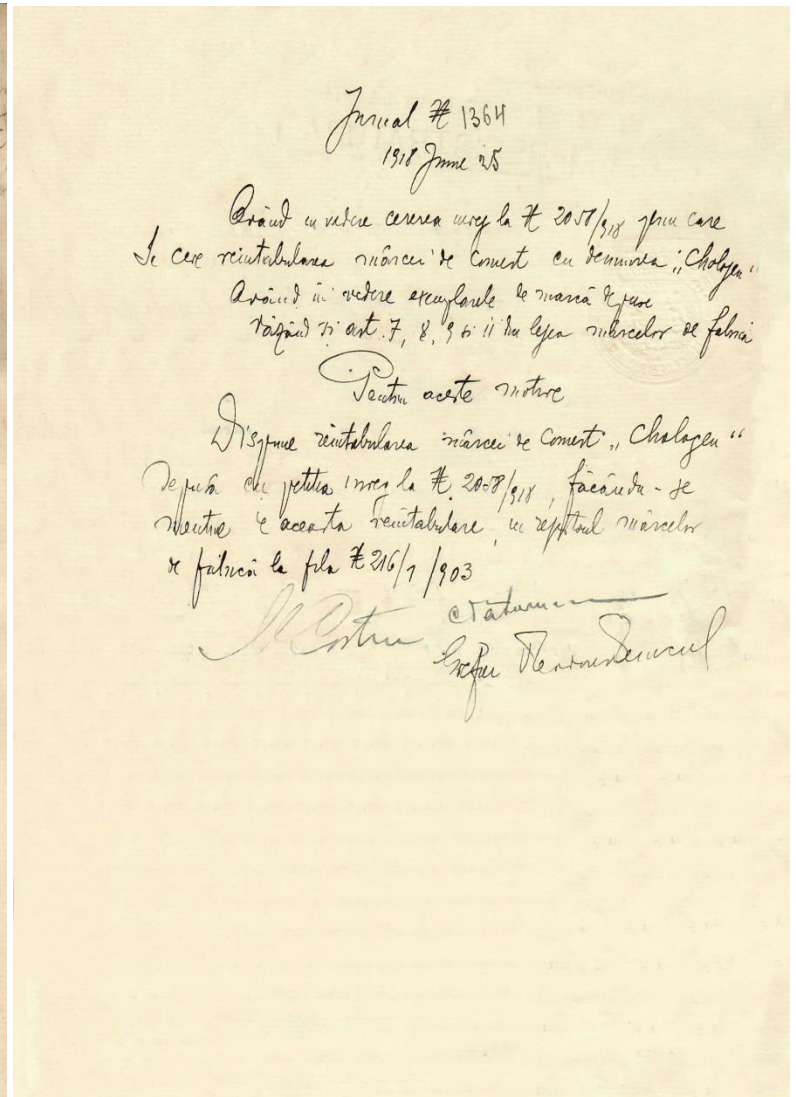 Jurnal № 1364
1918 Iunie 25
Având in vedere cererea inreg la № 2058/918 prin care
Se cere reintabularea mărcei de Comerț cu denumirea „Chologen“
Având in vedere exemplarele de marcă depuse
Văzând și art. 7, 8, 9 și 11 din legea mărcelor de fabrică
Pentru aceste motive
Dispune reintabularea mărcei de Comerț „Chologen“
depusă cu petitia inreg la № 2058/918, făcându-se
mentiune de aceasta reintabulare in registrul mărcelor
de fabrică la fila № 216/1 /903
Grefier